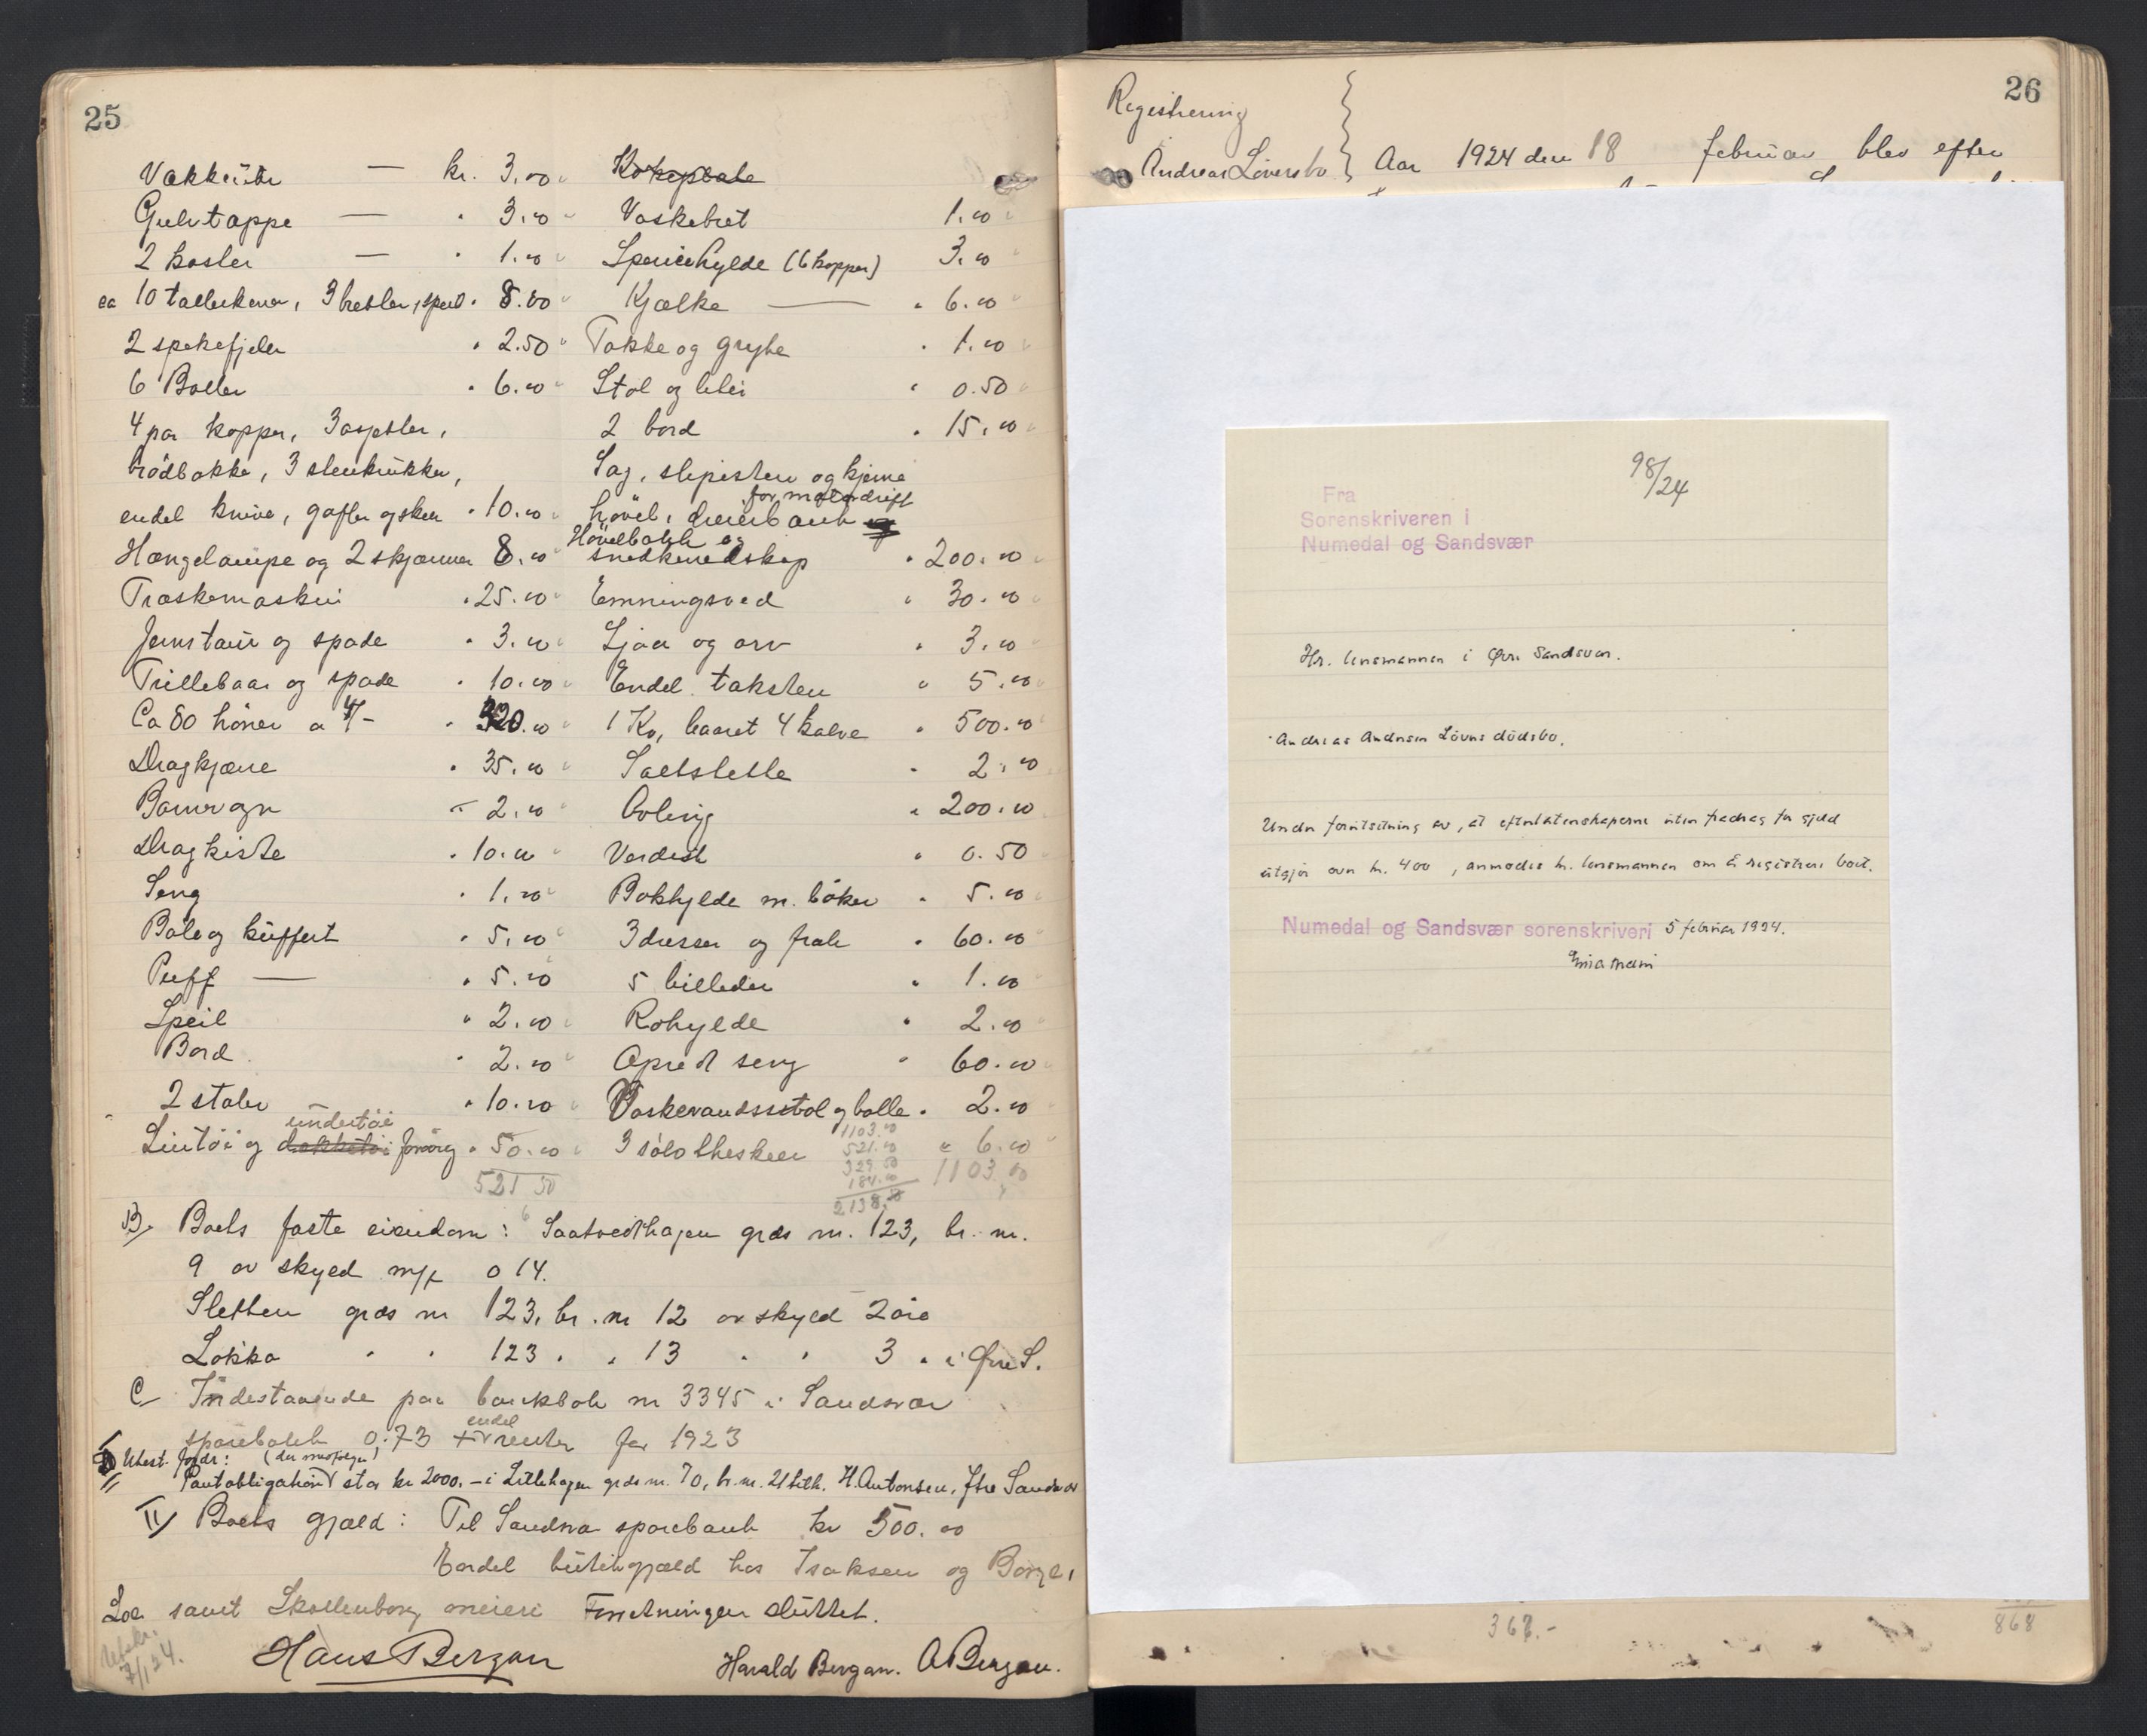 25
Vækkeruhr — kr. 3.00
Gulvtæppe — " 3.00
2 koster — " 1.00
ca 10 tallerkener, 3 bretter, speil " 8.00
2 spekefjeler " 2.50
6 Boller " 6.00
4 par kopper, 3 asjetter,
brödbakke, 3 stenkrukker,
endel knive, gafler og skeer " 10.00
Hængelampe og 2 skjærmer 8.00
Træskemaskin " 25.00
Jernstaur og spade " 3.00
Trillebaar og spade " 10.00
Ca 80 höner a 4/- " 320.00
Dragkjærre " 35.00
Barnevogn " 2.00
Dragkiste " 10.00
Seng " 1.00
Bale og kuffert " 5.00
Puff — " 5.00
Speil " 2.00
Bord " 2.00
2 stoler " 10.00
undertöi
Lintöi og dækketöi forövrig " 50.00
521 50
Kokeplate
Vaskebret 1.00
Speicehylde (6 kopper) 3.00
Kjælke — " 6.00
Takke og gryte " 1.00
Stol og 0.50
2 bord " 15.00
Sag, slipesten og kjerne
for motordrift
hövel, dreierbænk og
Hövelbænk og
snedkerredskap " 200.00
Emningsved " 30.00
Ljaa og orv " 3.00
Endel taksten " 5.00
1 Ku, baaret 4 kalve " 500.00
Saltslette 2.00
Avling " 200.00
Verdisk " 0.50
Bokhylde m. böker " 5.00
3 dresser og frak " 60.00
5 billeder " 1.00
Rohylde " 2.00
Opred seng " 60.00
Vaskevandsstol og bolle " 2.00
3 sölvtheskeer " 6.00
1103.00
521.00
329.50
184.00
2138.
1103.00
B/ Boets faste eiendom: Saatvedthagen grds nr. 123, br. nr.
9 av skyld m/k 0 14.
Sletten grds nr 123, br. nr 12 av skyld 2 öre
Løkka " " 123 " " 13 " " 3 " i Øvre S.
C/ Indestaaende paa bankbok nr 3345 i Sandsvær
endel
sparebank 0.73 + renter for 1923
Utest. fordr: (der medfølger)
Pantobligation stor kr 2000.- i Lillehagen grds nr. 70, br. nr. 21 tilh. H. Antonsen, Ytre Sandsvær
II/ Boets gjæld: Til Sandsvær sparebank kr 500.00
Endel butikgjæld hos Isaksen og Borge,
Loe samt Skollenborg meieri Forretningen sluttet.
Utskr.
7/1 24.
Hans Bergan
Harald Bergan. A Bergan.
26
Registrering
Andreas Löversbo } Aar 1924 den 18 februar blev efter
98/24
Fra
Sorenskriveren i
Numedal og Sandsvær
Hr. lensmannen i Øvre Sandsvær.
Andreas Andersen Lövers dödsbo.
Under forutsetning av, at efterlatenskapene uten fradrag for gjeld
utgjör over kr. 400, anmodes hr. lensmannen om å registrere boet.
Numedal og Sandsvær sorenskriveri 5 februar 1924.
367.-
868